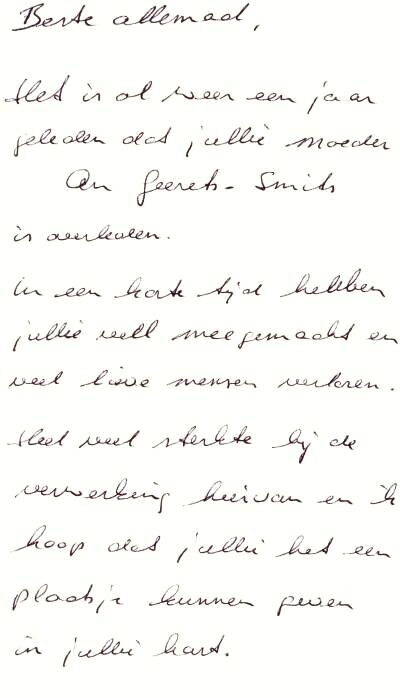 Beste allemaal,
Het is al weer een jaar
geleden dat jullie moeder
An Geerets-Smits
is overleden.
In een korte tijd hebben
jullie veel meegemaakt en
veel lieve mensen verloren.
Heel veel sterkte bij de
verwerking hiervan en ik
hoop dat jullie het een
plaatsje kunnen geven
in jullie hart.